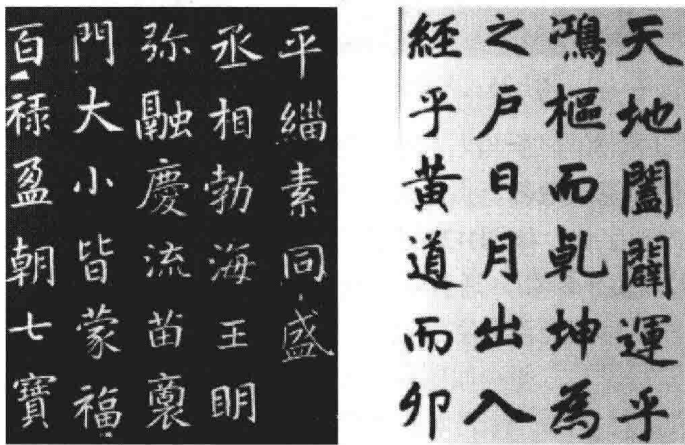 平緇素同盛
丞相勃海王眀
弥融慶流苗裔
門大小皆蒙福
百禄盈朝七寶
天地闔闢運乎
鴻樞而乹坤為
之戶日月出入
經乎黃道而卯